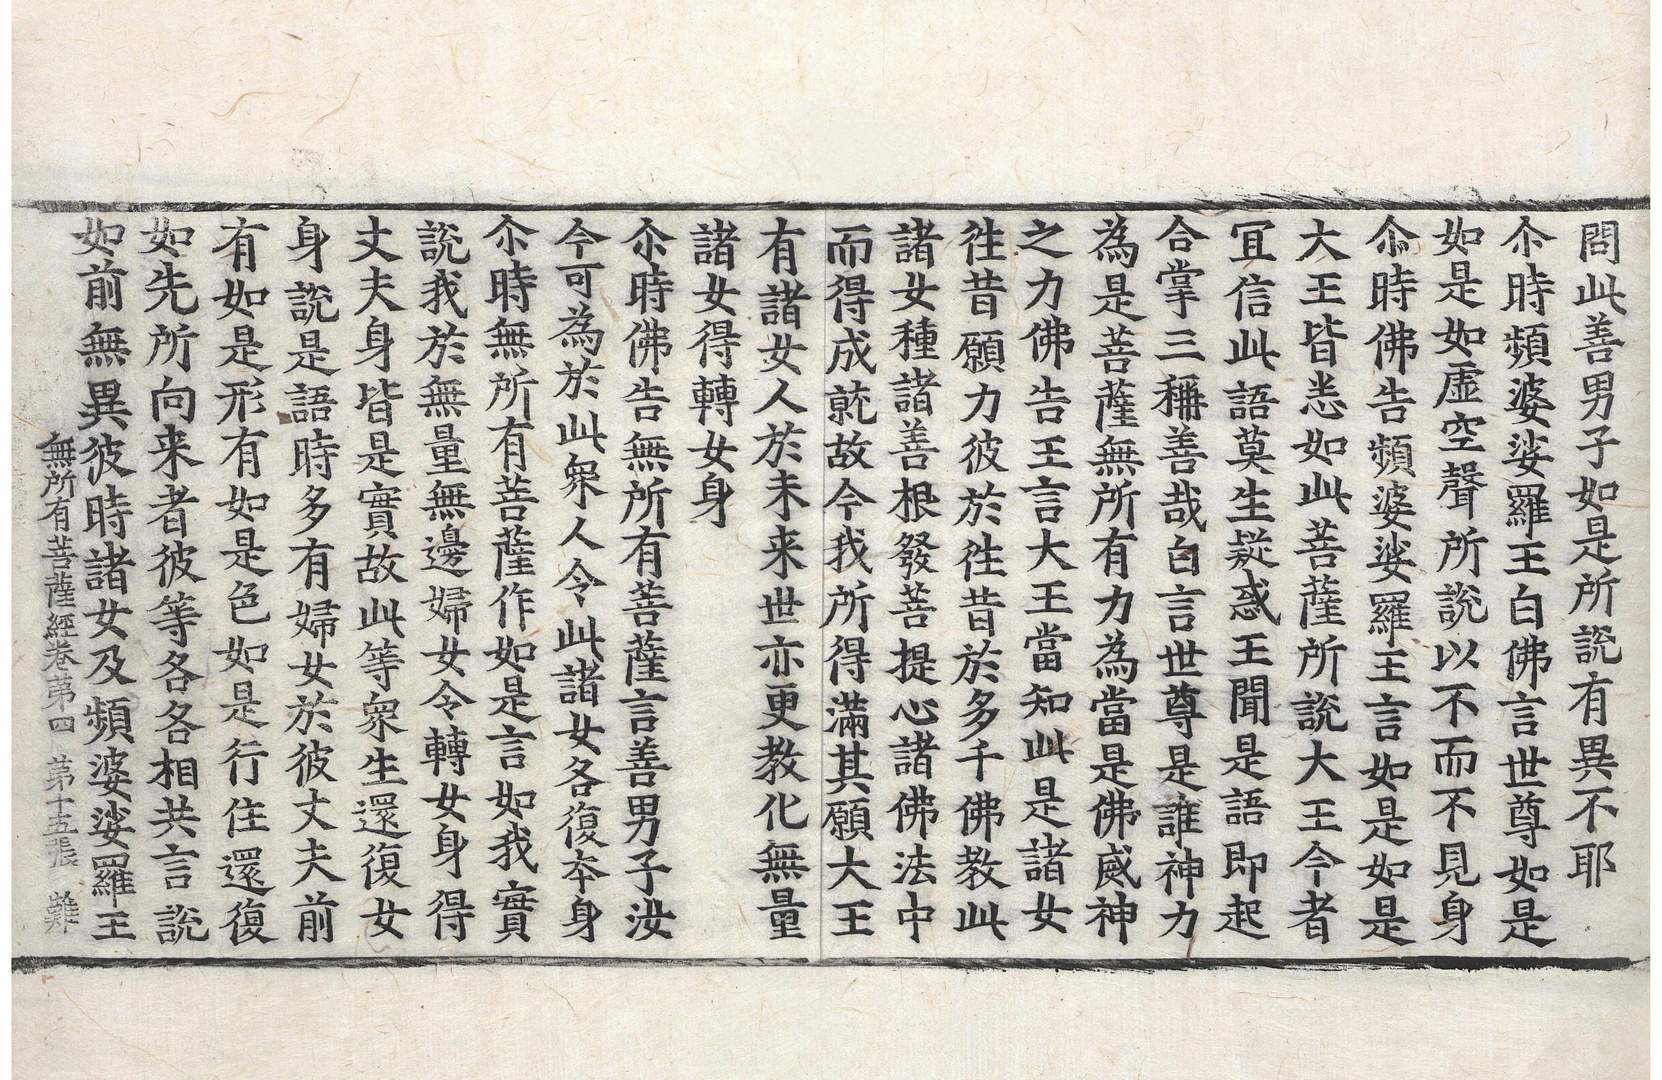 問此善男子如是所說有異不耶
尒時頻婆娑羅王白佛言世尊如是
如是如虛空聲所說以不而不見身
尒時佛告頻婆娑羅王言如是如是
大王皆悉如此菩薩所說大王今者
冝信此語莫生疑惑王聞是語即起
合掌三稱善哉白言世尊是誰神力
為是菩薩無所有力為當是佛威神
之力佛告王言大王當知此是諸女
徃昔願力彼於徃昔於多千佛教此
諸女種諸善根發菩提心諸佛法中
而得成就故今我所得滿其願大王
有諸女人於未来世亦更教化無量
諸女得轉女身
尒時佛告無所有菩薩言善男子汝
今可為於此衆人令此諸女各復夲身
尒時無所有菩薩作如是言如我實
說我於無量無邊婦女令轉女身得
丈夫身皆是實故此等衆生還復女
身說是語時多有婦女於彼丈夫前
有如是形有如是色如是行住還復
如先所向来者彼等各各相共言說
如前無異彼時諸女及頻婆娑羅王
無所有菩薩經卷第四 第十五張 難